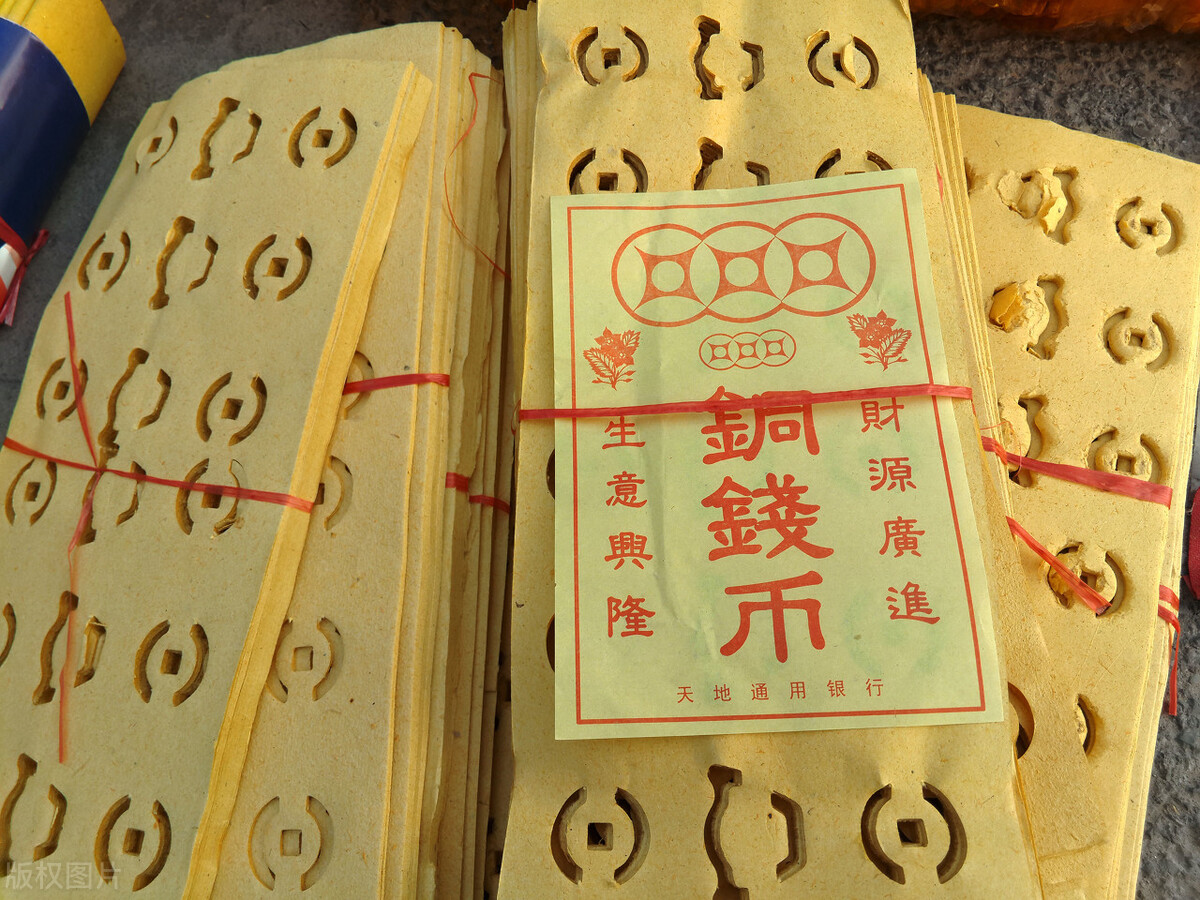 銅錢币
財源廣進
生意興隆
天地通用银行
版权图片